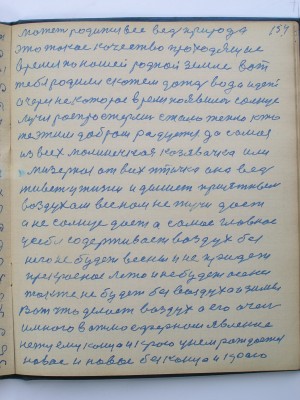 может родители все ведь природа 154
это такое качество проходящие
время по нашей родной земле вот
тебя родили скажем дожд вода идет
а через некоторое время появился солнце
лучи распростерли стало тепло кто
же этим добром радуется да самая
из всех малиничкая козявачка или
мизерная от вих птичка она ведь
живет у жизни и дишет приятным
воздухам весном не тучи дает
а не солнце дает а самое главное
у себя содерживает воздух без
него не будет весны и не приидет
прекрасное лето и не будет осени
также не будет без воздуха зимы
Вот что делает воздух а его очен
много важно эфирном явление
нету ему конца и краю у нем рождается
новое и новое без конца и краю